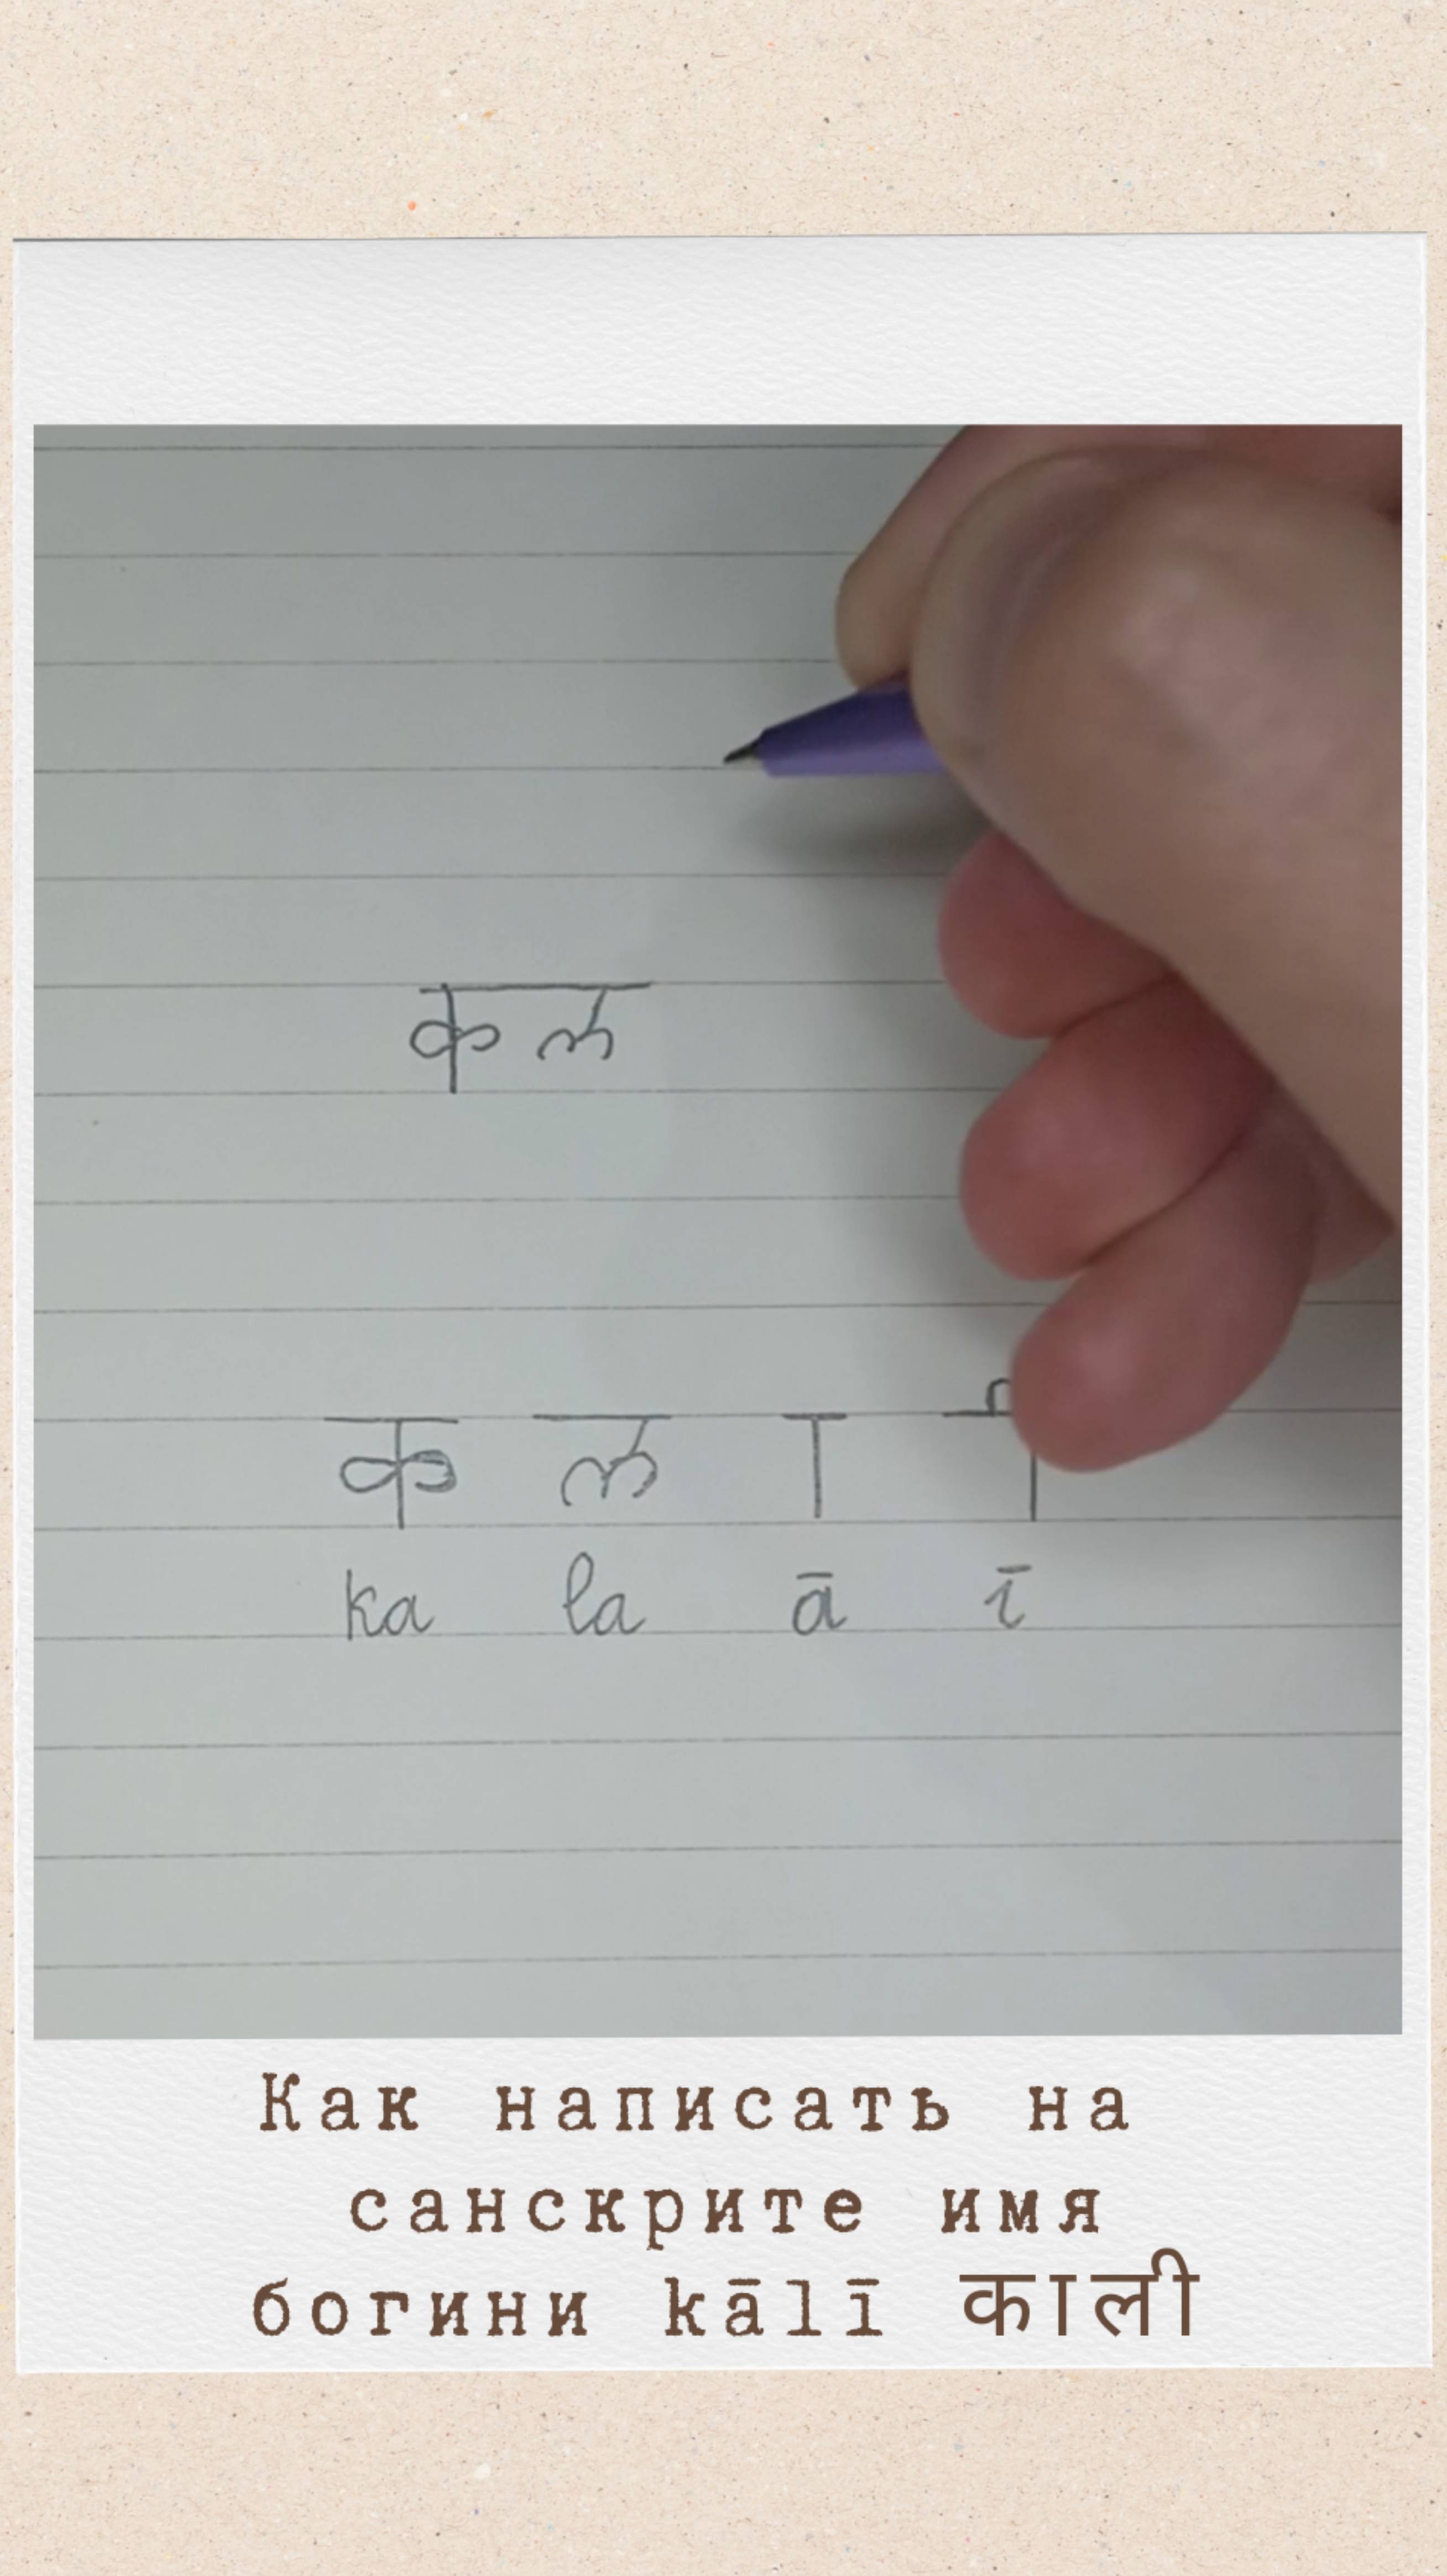 क ल
क ल ा ी
ka la ā ī
Как написать на
санскрите имя
богини kālī काली